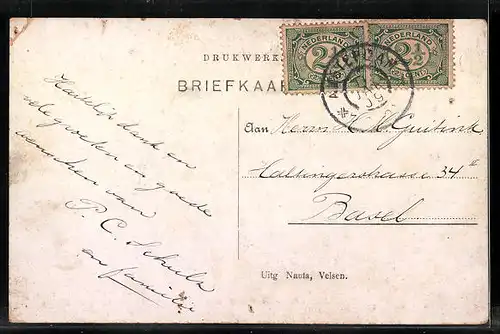 DRUKWERK
BRIEFKAA
NEDERLAND
2½
CENT
NEDERLAND
2½
CENT
AMSTERDAM
Hartelijk dank en
zegewenschen en goede
wenschen van
P. C. Schulz
en familie
Aan Herrn H. K. Guitink
Haltingerstrasse 34
Basel
Uitg Nauta, Velsen.